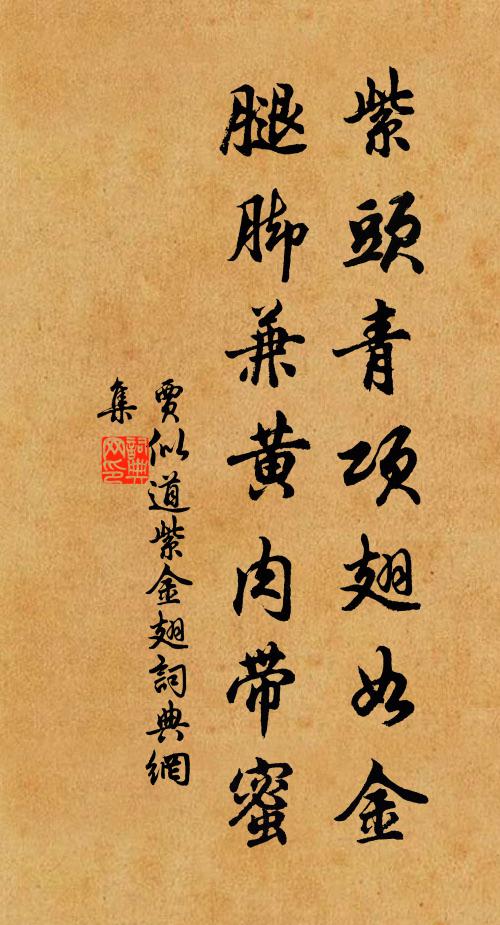 紫頭青項翅如金
腿脚兼黄肉带蜜
賈似道紫金翅詞典網
集